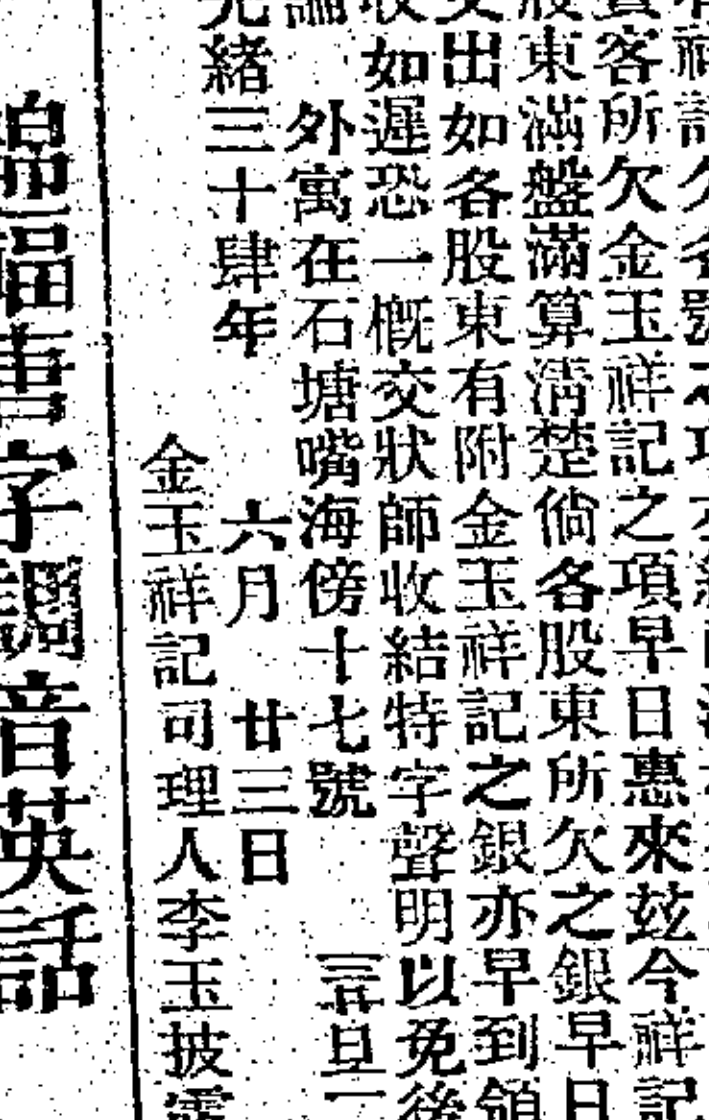 祥記欠各號之項
貴客所欠金玉祥記之項早日惠來玆今祥記
股東滿盤滿算淸楚倘各股東所欠之銀早日
交出如各股東有附金玉祥記之銀亦早到領
收如遲恐一槪交狀師收結特字聲明以免後
論 外寓在石塘嘴海傍十七號
光緒三十肆年 六月 廿三日
金玉祥記司理人李玉披露
字調音英話